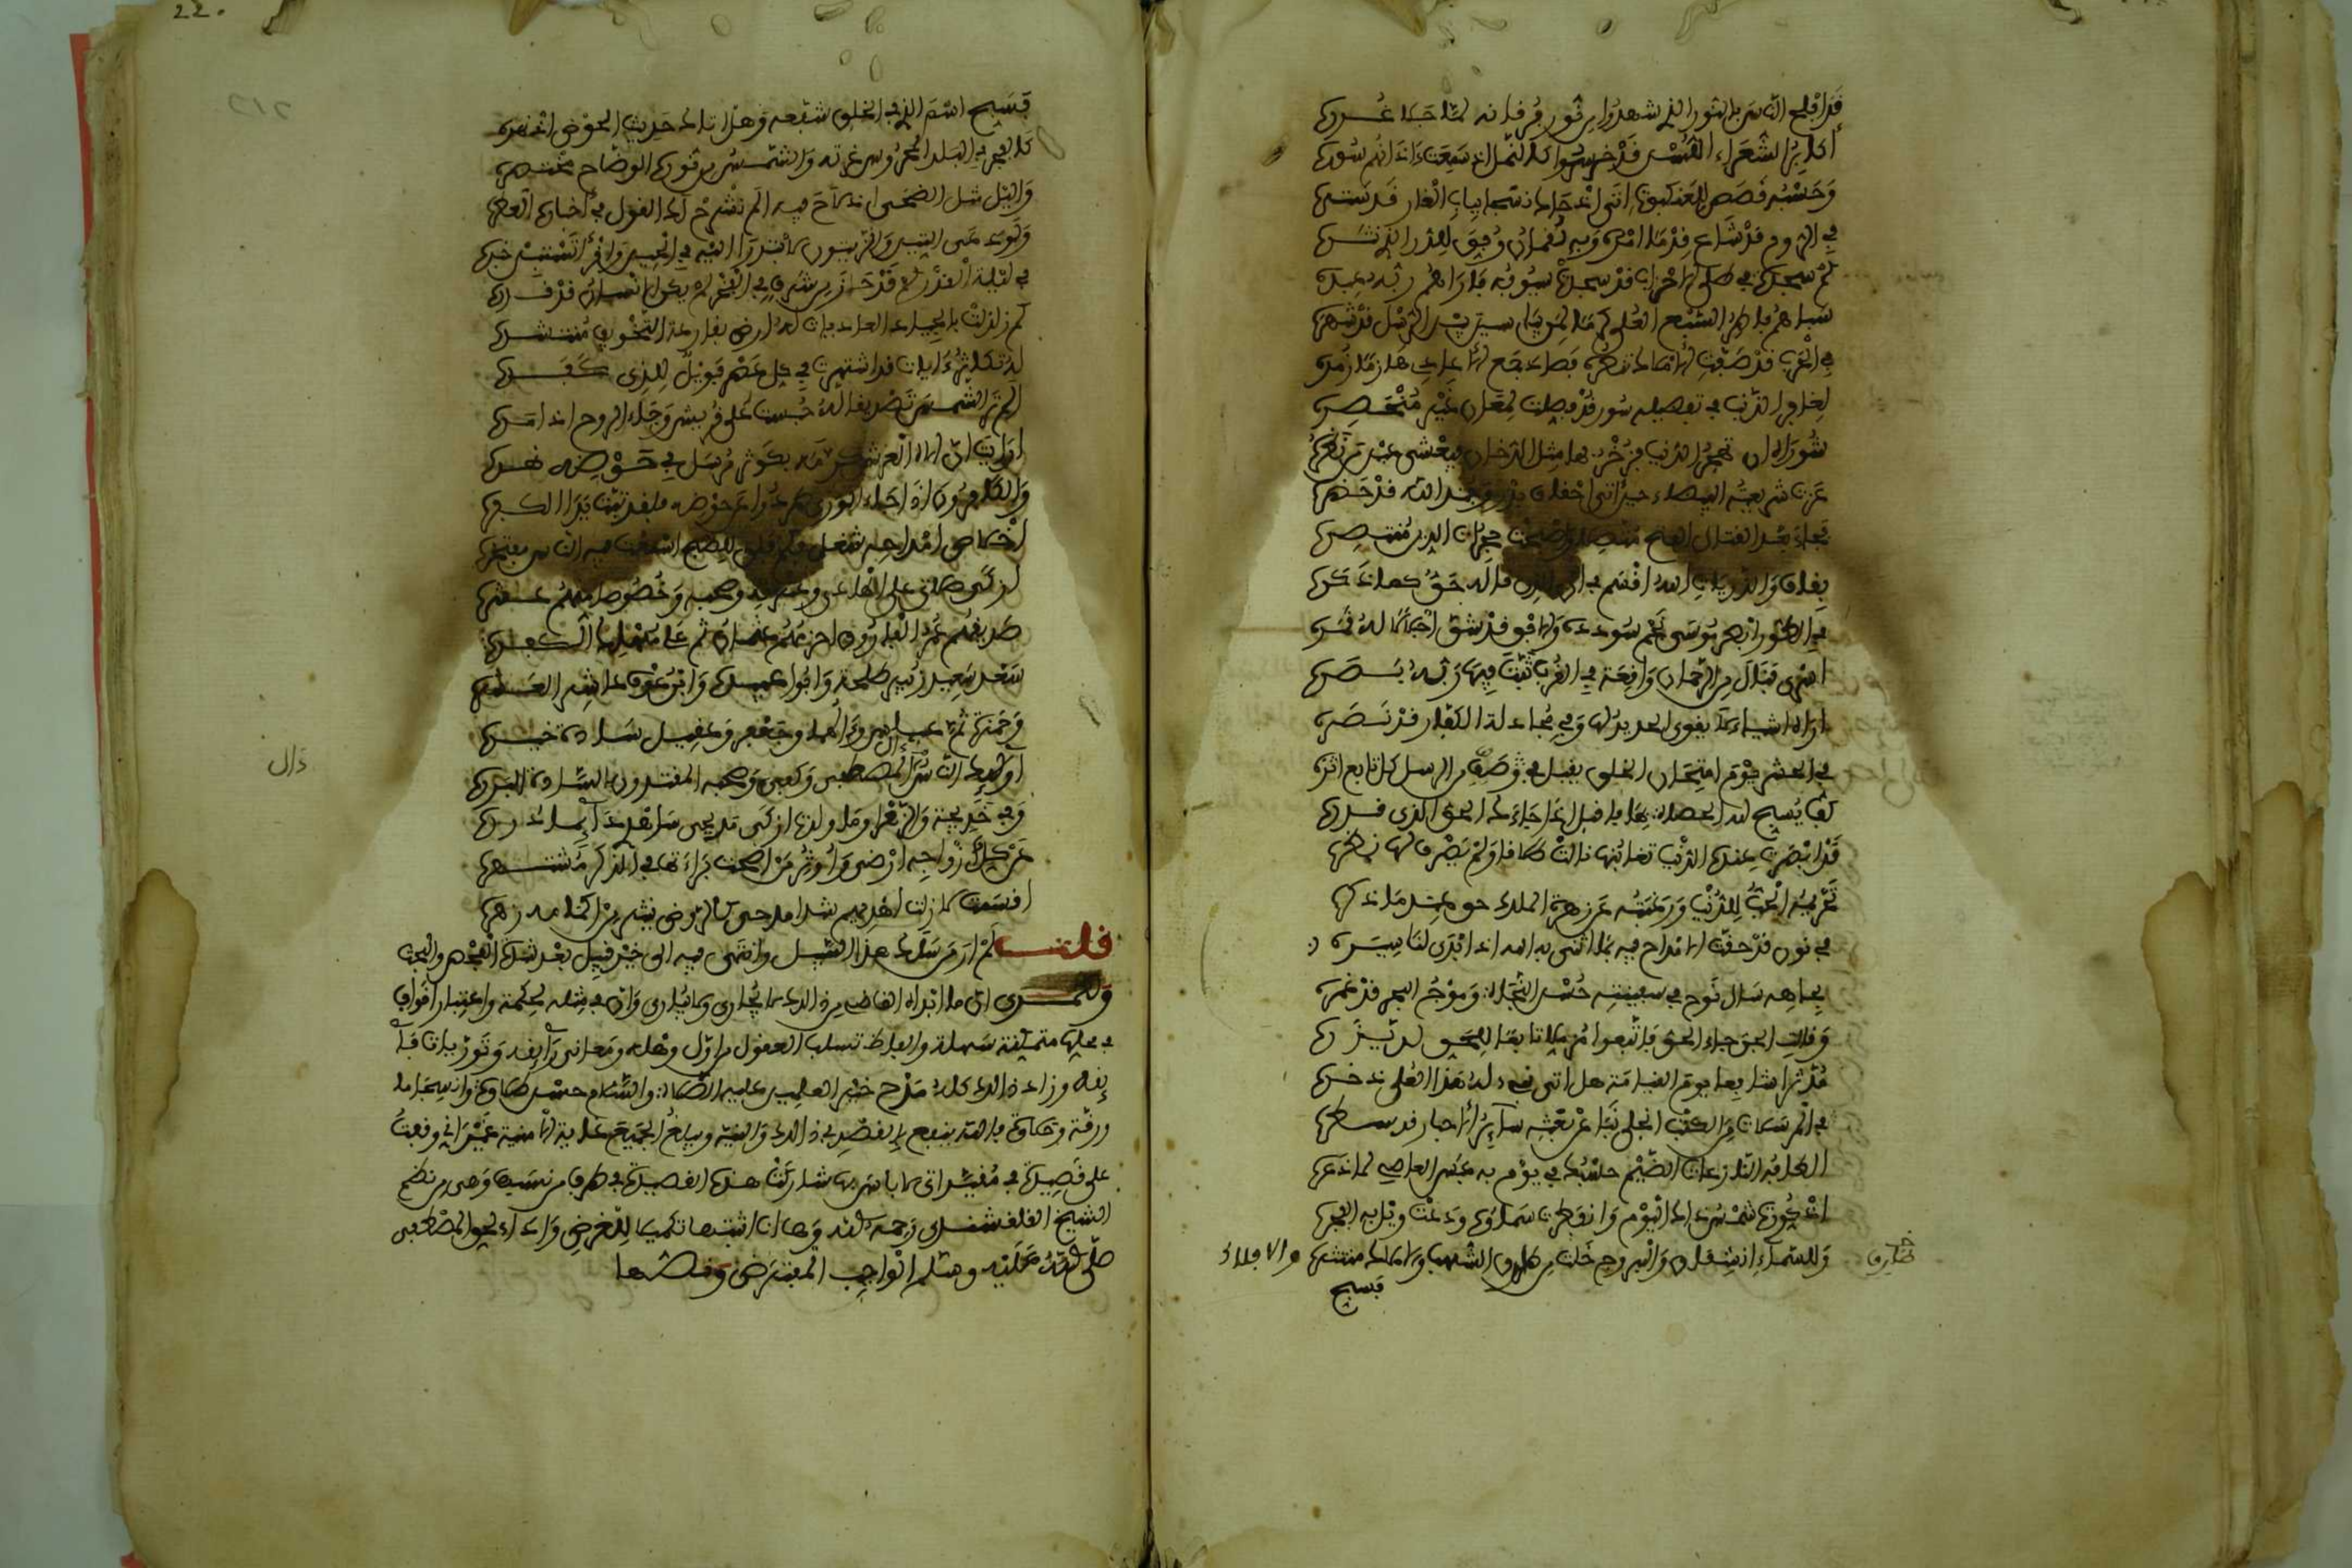 قد افلح الناس بالنور الذي شهدوا من نور فرقانه لما جلا غررا
أكابر الشعراء اللسن قد خرسوا كالنمل اذ سمعت ءاذانهم سورا
وحسبه قصص للعنكبوت اتى اذ حاك نسجا بباب الغار قد سترا
في الروم قد شاع قدما امره وبه لقمان وفق للدر الذي نثرا
كم سجدة في طلى الاحزاب قد سجدت سيوفه فاراهم ربه عبرا
سباهم فاطر السبع العلى كرما لمن بياسين بين الرسل قد شهرا
في الحرب قد صفت الاملاك تنصره فصاد جمع الاعادي هازما زمرا
لغافر الذنب في تفصيله سور قد فصلت لمعان غير منحصره
شوراه ان تهجر الدنيا فزخرفها مثل الدخان فيعشي عين من نظرا
عزت شريعته البيضاء حين اتى احقاف بدر وجند الله قد حضرا
فجاء بعد القتال الفتح متصلا واصبحت حجرات الدين منتصره
بقاف والذاريات الله اقسم في ان الذي قاله حق كما ذكرا
في الطور ابصر موسى نجم سودده والافق قد شق اجلالا له قمره
اسرى فنال من الرحمان واقعة في القرب ثبت فيها ربه بصره
اراه اشياء لا يقوى الحديد لها وفي مجادلة الكفار قد نصره
في الحشر يوم امتحان الخلق يقبل في صف من الرسل كل تابع اثره
كف يسبح لله الحصاة بها فاقبل اذا جاءك الحق الذي قدره
قد ابصرت عنده الدنيا تغابنها نالت طلاقا ولم يصرف لها نظره
تحريمه الحب للدنيا ورغبته عن زهرة الملك حق عند ما ذكره
في نون قد حقت الامداح فيه بما اثنى به الله اذ ابدى لنا سيره
بجاهه سال نوح في سفينته حسن النجاة وموج البحر قد غمره
وقالت الجن جاء الحق فاتبعوا مزملا تابعا للحق لن يذره
مدثرا شافعا يوم القيامة هل اتى نبي له هذا العلى ذخره
في المرسلات من الكتب انجلى نبأ عن بعثه سائر الاحبار قد سطره
الطافه النازعات الضيم حسبك في يوم به عبس العاصي لمن ذعره
اذ كورت شمس ذاك اليوم وانفطرت سماؤه ودعت ويل به الفجره
وللسماء انشقاق والبروج خلت من طارق الشهب والافلاك منتثره
طارق
والافلاك
فسبح
22.
212
فسبح اسم الذي في الخلق شفعه وهل اتاك حديث الحوض اذ نهره
كالفجر في البلد المحروس غرته والشمس من نوره الوضاح مختصره
والليل مثل الضحى اذ لاح فيه الم نشرح لك القول في اخباره العطره
ولو دعا التين والزيتون لابتدرا اليه في الحين واقرأ تستبن خبره
في ليلة القدر كم قد حاز من شرف في الفخر لم يكن الانسان قد قدره
كم زلزلت بالجياد العاديات له ارض بقارعة التخويف منتشره
له تكاثر ءايات قد اشتهرت في كل عصر فويل للذي كفره
الم تر الشمس تصديقا له حبست على قريش وجاء الروح اذ امره
ارايت ان اله العرش كرمه بكوثر مرسل في حوضه نهره
والكافرون اذا جاء الورى طردوا عن حوضه فلقد تبت يدا الكفره
اخلاص امداحه شغلي فكم فلق للصبح اسمعت فيه الناس مفتخره
ازكى صلاتي على الهادي وعترته وصحبه وخصوصا منهم عشره
صديقهم عمر الفاروق احزمهم عثمان ثم علي مهلك الكفره
سعد سعيد زبير طلحة وابوا عبيدة وابن عوف عاشر العشره
وحمزة ثم عباس وءالهما وجعفر وعقيل سادة خيره
اولئك الناس ءال المصطفى وكفى وصحبه المقتدون السادة البرره
وفي خديجة والزهرا وما ولدت ازكى مديحي ساهدي دائما درره
عن كل ازواجه ارضى واوثر من اضحت براءتها في الذكر مشتهره
اقسمت لازلت اهديهم شذا مدحي كالروض ينثر من اكمامه زهره
قلت لم ار من سلك هذا السبيل وانتهى فيه الى خير قبيل بعد شدة الفحص والبحث
ولعمري ان ما ابداه القاضي من ذالك لا يجارى ولا يبارى وان في مثله لحكمة واعتبار اقوافي
في محلها متمكنة سهلة والفاظ تسلب العقول من اول وهله ومعاني رائقه وتوريات فا
ئقه وزاد ذالك كله مدح خير العلمين عليه الصلاة والسلام حسن طلاوة وانسجاما
ورقة وحلاوة فالله ينفع بالقصد في ذالك والنية ويبلغ الجميع غاية الامنية غير اني وقفت
على قصيدة في مفيداتي لا باس بها شاركت هذه القصيدة في طرف من نسبها وهي من نظم
الشيخ القلقشندي رحمه الله وها انا اثبتها تكميلا للغرض واداء لحق المصطفى
صلى الله عليه وسلم الواجب المفترض ونصها
دال